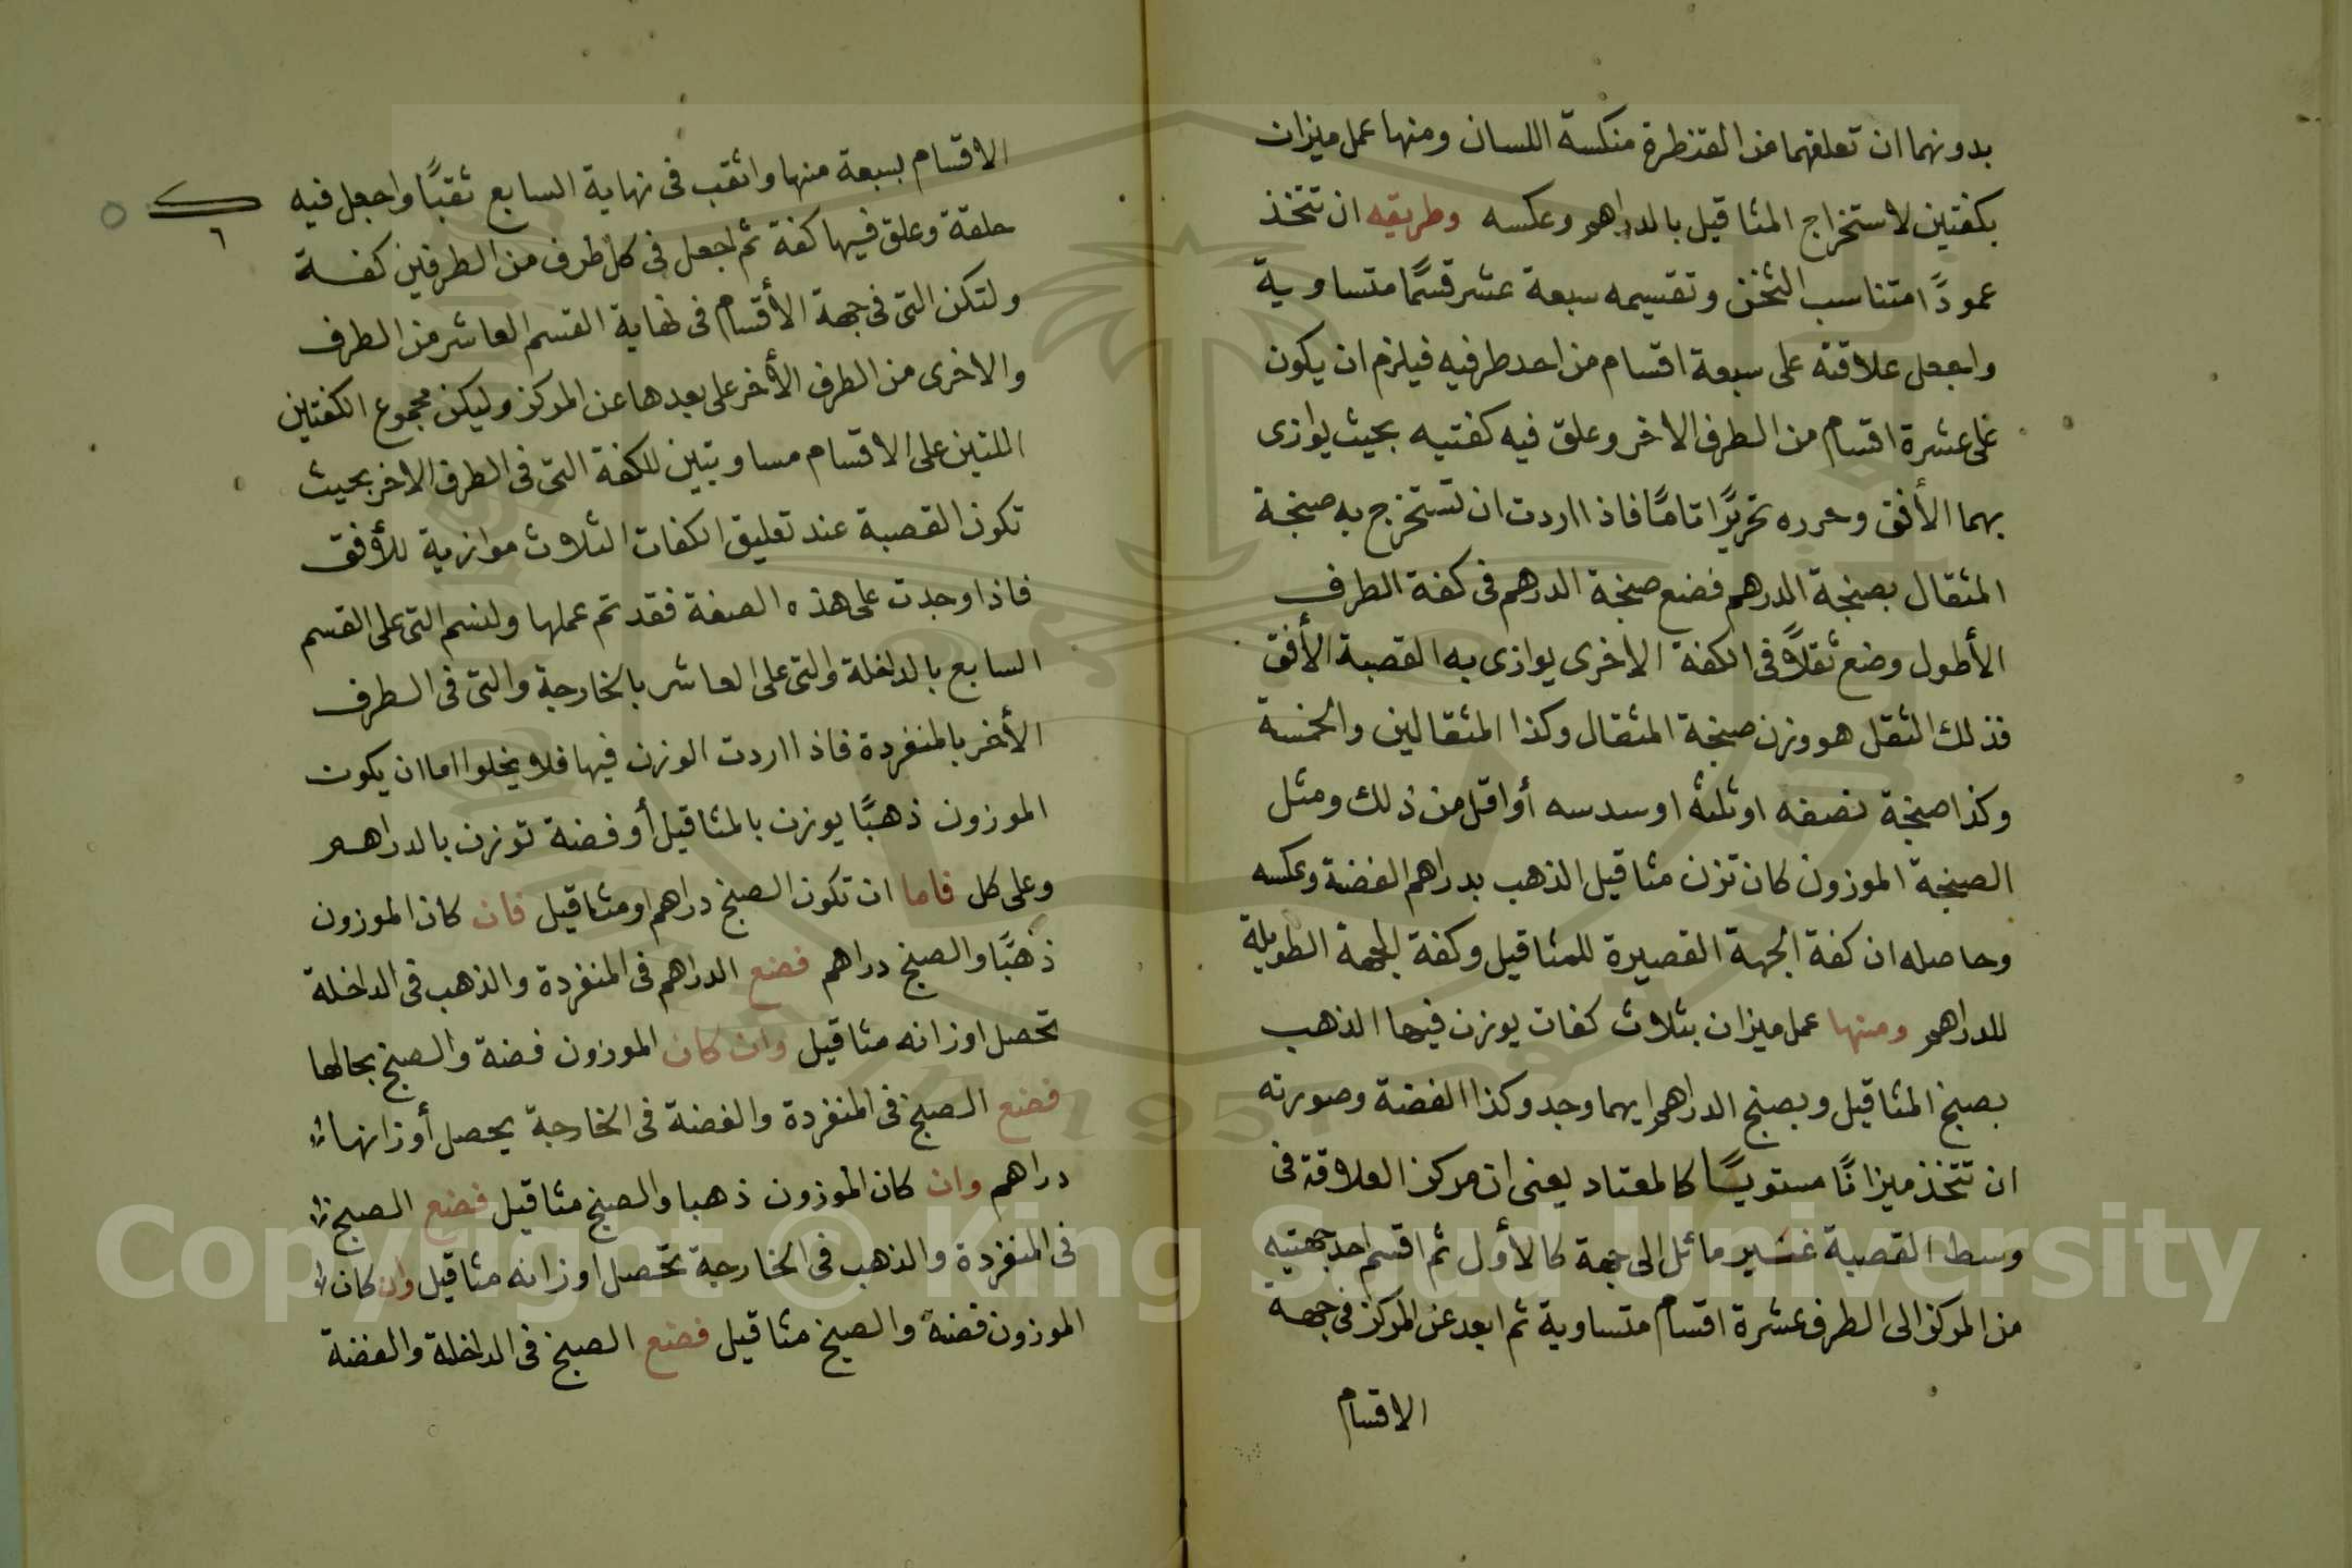 بدونهما ان تعلقهما من القنطرة منكسة اللسان ومنها عمل ميزان
بكفتين لاستخراج المثاقيل بالدراهم وعكسه وطريقه ان تتخذ
عمودًا متناسب الثخن وتقسيمه سبعة عشر قسمًا متساوية
واجعل علاقته على سبعة اقسام من احد طرفيه فيلزم ان يكون
على عشرة اقسام من الطرف الاخر وعلق فيه كفتيه بحيث يوازى
بهما الأفق وحرره تحريرًا تامًا فاذا اردت ان تستخرج به صنجة
المثقال بصنجة الدرهم فضع صنجة الدرهم فى كفة الطرف
الأطول وضع ثقلاً فى الكفة الاخرى يوازى به القصبة الأفق
فذلك الثقل هو وزن صنجة المثقال وكذا المثقالين والخمسة
وكذا صنجة نصفه او ثلثه او سدسه أو اقل من ذلك ومثل
الصنجة الموزون كان تزن مثاقيل الذهب بدراهم الفضة وعكسه
وحاصله ان كفة الجهة القصيرة للمثاقيل وكفة الجهة الطويلة
للدراهم ومنها عمل ميزان بثلاث كفات يوزن فيها الذهب
بصنج المثاقيل وبصنج الدراهم ايهما وجد وكذا الفضة وصورته
ان تتخذ ميزانًا مستويًا كالمعتاد يعنى ان مركز العلاقة فى
وسط القصبة غير مائل الى جهة كالأول ثم اقسم احد جهتيه
من المركز الى الطرف عشرة اقسام متساوية ثم ابعد عن المركز فى جهة
الاقسام
الاقسام بسبعة منها واثقب فى نهاية السابع ثقبًا واجعل فيه
٦
حلقة وعلق فيها كفة ثم اجعل فى كل طرف من الطرفين كفة
ولتكن التى فى جهة الأقسام فى نهاية القسم العاشر من الطرف
والاخرى من الطرف الأخر على بعدها عن المركز وليكن مجموع الكفتين
اللتين على الاقسام مساويتين للكفة التى فى الطرف الاخر بحيث
تكون القصبة عند تعليق الكفات الثلاث موازية للأفق
فاذا وجدت على هذه الصفة فقد تم عملها ولنسم التى على القسم
السابع بالداخلة والتى على العاشر بالخارجة والتى فى الطرف
الأخر بالمنفردة فاذا اردت الوزن فيها فلا يخلوا اما ان يكون
الموزون ذهبًا يوزن بالمثاقيل أو فضة توزن بالدراهم
وعلى كل فاما ان تكون الصنج دراهم او مثاقيل فان كان الموزون
ذهبًا والصنج دراهم فضع الدراهم فى المنفردة والذهب فى الداخلة
تحصل اوزانه مثاقيل وان كان الموزون فضة والصنج بحالها
فضع الصنج فى المنفردة والفضة فى الخارجة يحصل أوزانها
دراهم وان كان الموزون ذهبا والصنج مثاقيل فضع الصنج
فى المنفردة والذهب فى الخارجة تحصل اوزانه مثاقيل وان كان
الموزون فضة والصنج مثاقيل فضع الصنج فى الداخلة والفضة
Copyright © King Saud University
1957